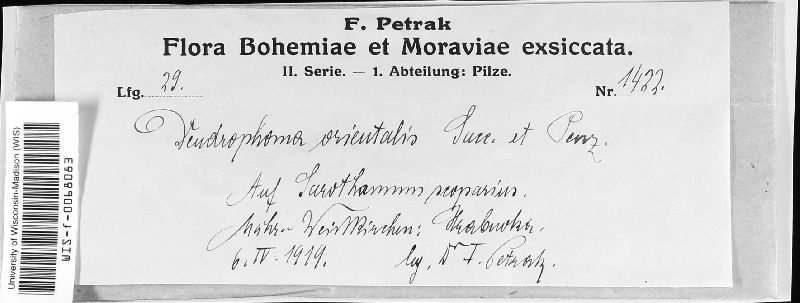 F. Petrak
Flora Bohemiae et Moraviae exsiccata.
II. Serie. — 1. Abteilung: Pilze.
Lfg. 29.
Nr. 1422.
Dendrophoma orientalis Sacc. et Penz.
Auf Sarothamnus scoparius.
Mähr.- Weisskirchen: Hrabuvka.
6. IV. 1919.
leg. Dr F. Petrak.
University of Wisconsin-Madison (WIS)
WIS-f-0068063